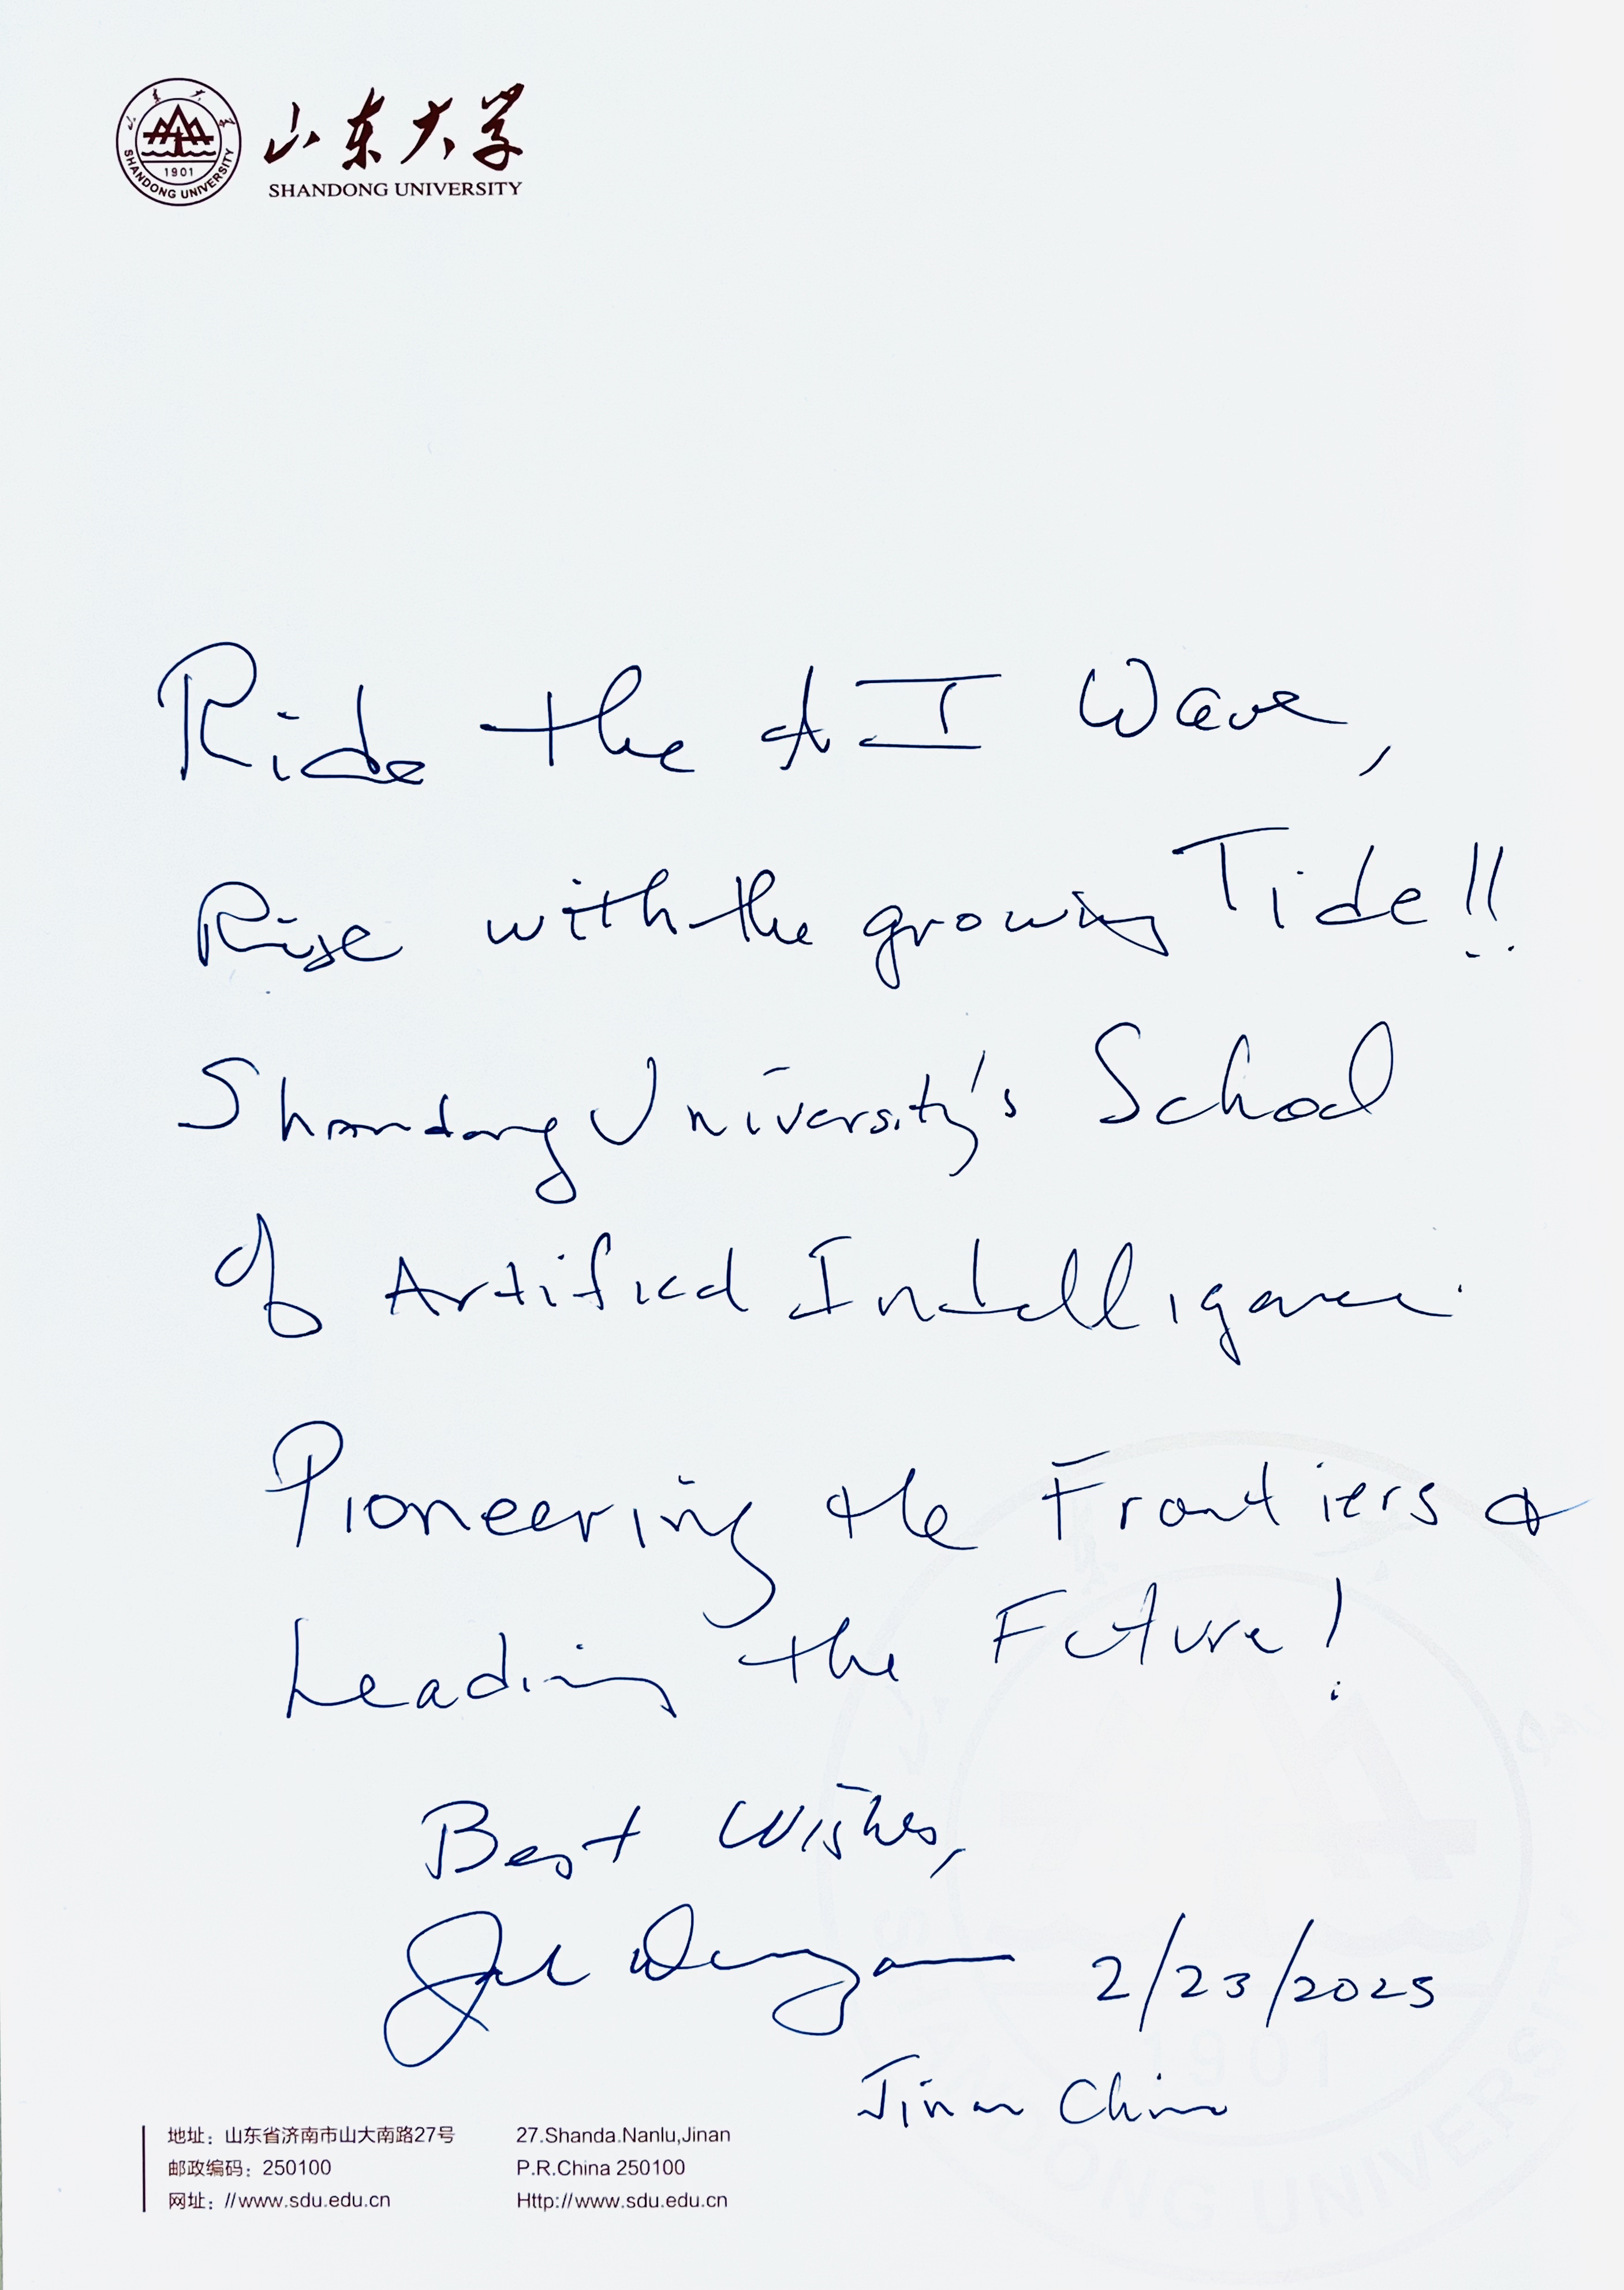 山东大学
SHANDONG UNIVERSITY
1901
SHANDONG UNIVERSITY
Ride the AI Wave,
Rise with the growing Tide!!
Shandong University's School
of Artificial Intelligence.
Pioneering the Frontiers &
Leading the Future!
Best Wishes,
2/23/2025
Jinan China
地址：山东省济南市山大南路27号
邮政编码：250100
网址：//www.sdu.edu.cn
27.Shanda.Nanlu,Jinan
P.R.China 250100
Http://www.sdu.edu.cn